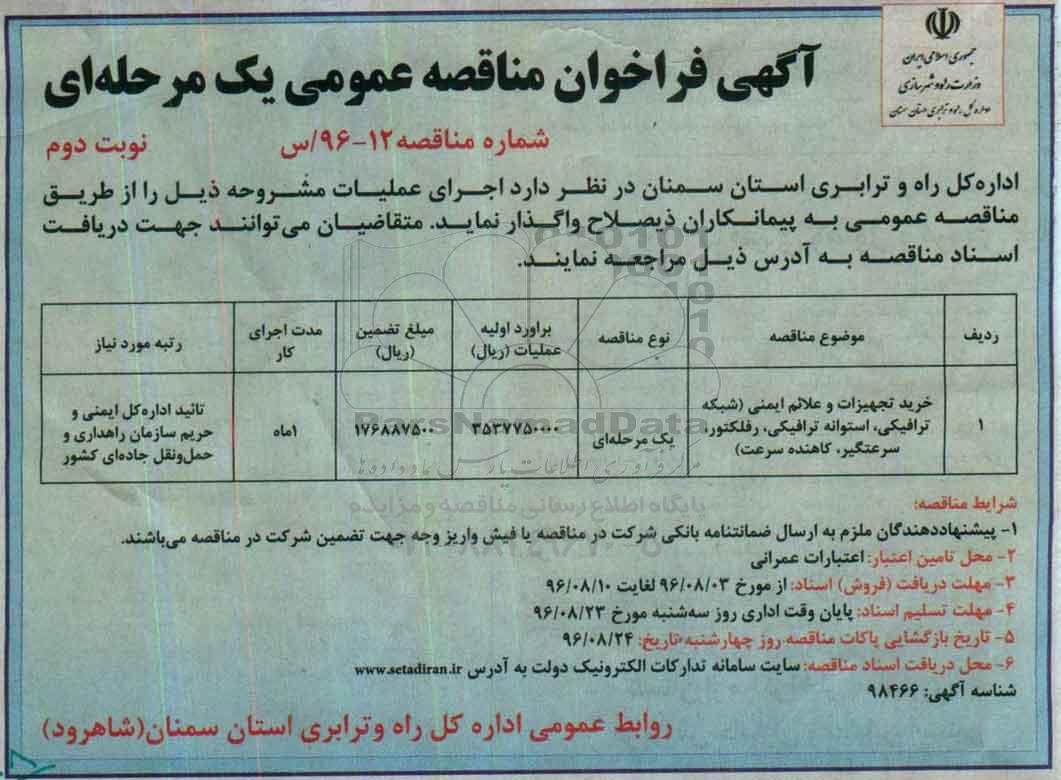 جمهوری اسلامی ایران
وزارت راه و شهرسازی
اداره کل راه و ترابری استان سمنان
آگهی فراخوان مناقصه عمومی یک مرحله‌ای
شماره مناقصه ۱۲-۹۶/س
نوبت دوم
اداره‌کل راه و ترابری استان سمنان در نظر دارد اجرای عملیات مشروحه ذیل را از طریق
مناقصه عمومی به پیمانکاران ذیصلاح واگذار نماید. متقاضیان می‌توانند جهت دریافت
اسناد مناقصه به آدرس ذیل مراجعه نمایند.
ردیف
موضوع مناقصه
نوع مناقصه
براورد اولیه
عملیات (ریال)
مبلغ تضمین
(ریال)
مدت اجرای
کار
رتبه مورد نیاز
۱
خرید تجهیزات و علائم ایمنی (شبکه
ترافیکی، استوانه ترافیکی، رفلکتور،
سرعتگیر، کاهنده سرعت)
یک مرحله‌ای
۳۵۳۷۷۵۰۰۰۰
۱۷۶۸۸۷۵۰۰
۱ماه
تائید اداره‌کل ایمنی و
حریم سازمان راهداری و
حمل‌ونقل جاده‌ای کشور
ParsNamadData
پایگاه اطلاع رسانی مناقصه و مزایده
شرایط مناقصه:
۱- پیشنهاددهندگان ملزم به ارسال ضمانتنامه بانکی شرکت در مناقصه یا فیش واریز وجه جهت تضمین شرکت در مناقصه می‌باشند.
۲- محل تامین اعتبار: اعتبارات عمرانی
۳- مهلت دریافت (فروش) اسناد: از مورخ ۹۶/۰۸/۰۳ لغایت ۹۶/۰۸/۱۰
۴- مهلت تسلیم اسناد: پایان وقت اداری روز سه‌شنبه مورخ ۹۶/۰۸/۲۳
۵- تاریخ بازگشایی پاکات مناقصه: روز چهارشنبه تاریخ: ۹۶/۰۸/۲۴
۶- محل دریافت اسناد مناقصه: سایت سامانه تدارکات الکترونیک دولت به آدرس www.setadiran.ir
شناسه آگهی: ۹۸۴۶۶
روابط عمومی اداره کل راه وترابری استان سمنان(شاهرود)